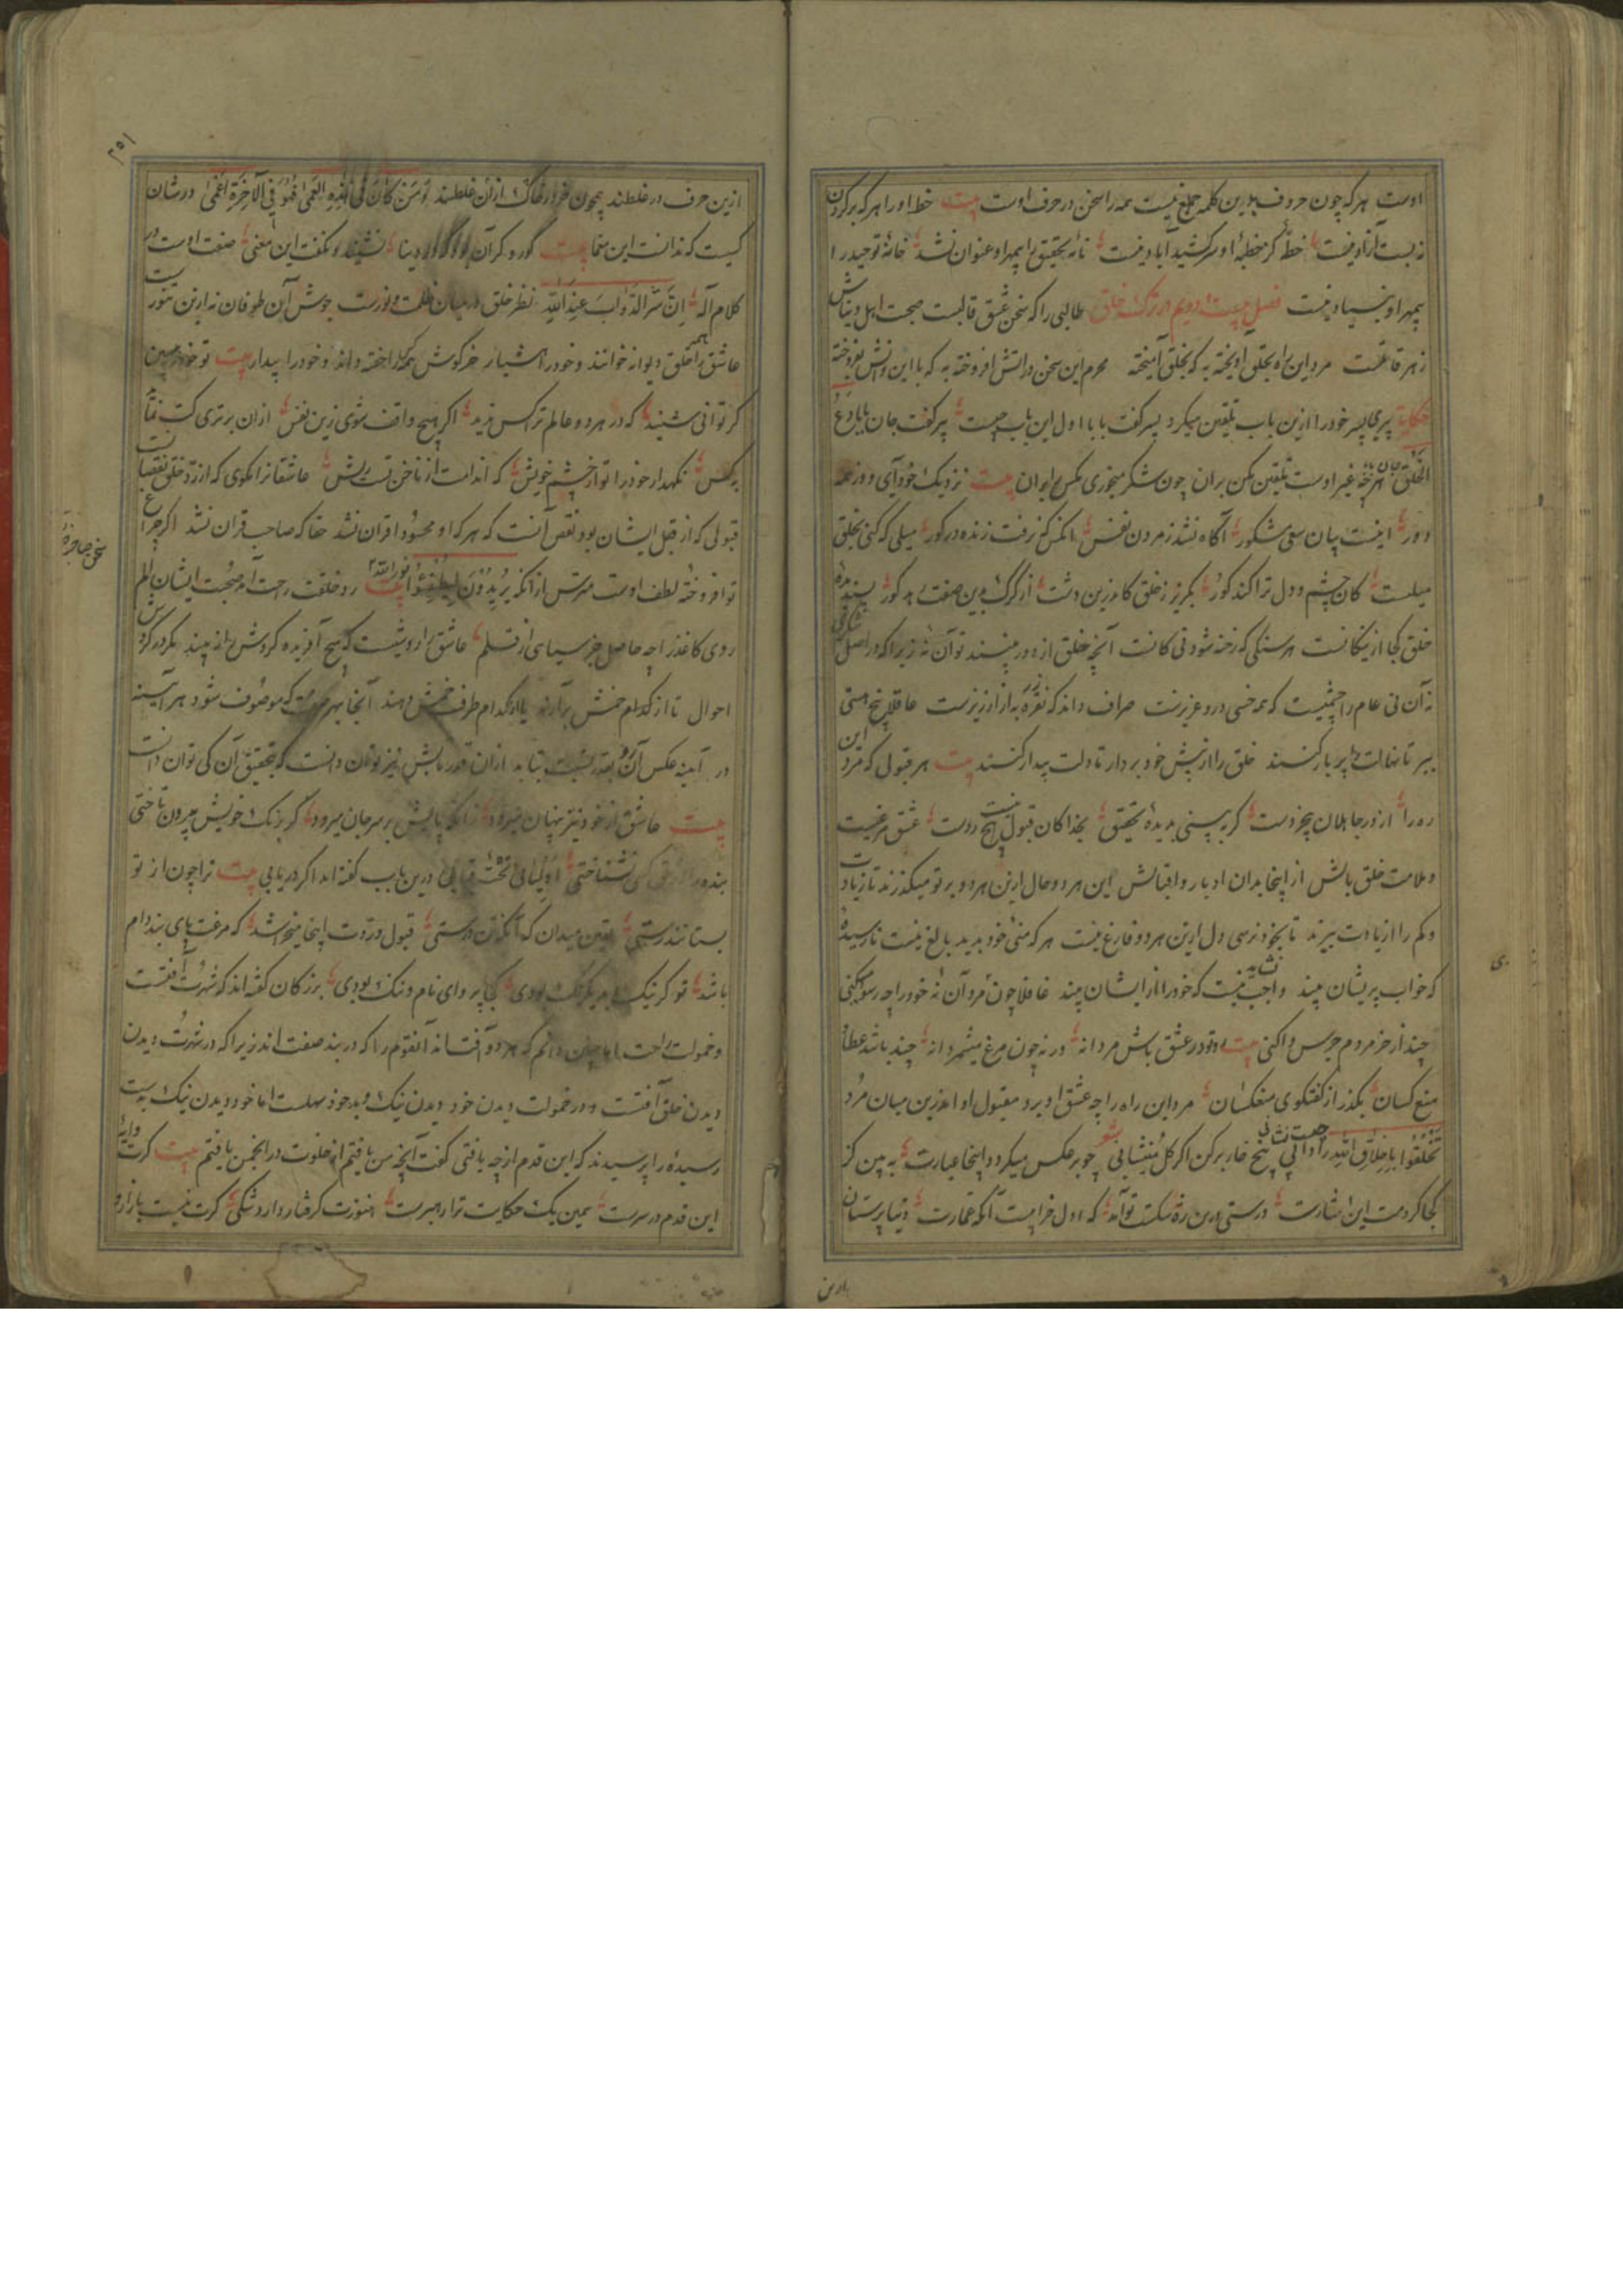 اوست هر که چون حروف بدین کلمه جمع نیست همه را سخن در حرف اوست بیت خط او را هر که بر گردن
نه بست آزاد نیست خطّهٔ کز خطبهٔ او سر کشید آباد نیست نامهٔ تحقیق را بیمهر او عنوان نشد خانهٔ توحید را
بیمهر او بنیاد نیست فصل بیست و دویم در ترک خلق طالبی را که سخن عشق قالبست صحبت اهل دنیاش
زهر قاتلست مرد این راه بحلق آویخته به که بخلق آمیخته محرم این سخن در آتش افروخته به که با این دانش بفروخته
حکایت پیری پسر خود را ازین باب تلقین میکرد پسر گفت بابا اول این باب چیست پیر گفت جان بابا دع
الخلق هرچه غیر اوست تلقین مکن بران چون شکر میخوری مکس بران بیت نزدیک خود آی و دور همه
دور اینست بیان سعی مشکور آگاه نشد ز مردن نفس آنکس که نرفت زنده در گور میلی که کنی بخلق
میلست کان چشم و دل ترا کند کور بگریز ز خلق کاندرین دشت از گرگ بدین صفت رمد گور پسندیدهٔ
خلق کجا از نیکانست هر سنگی که رخنه شود نی کانست آنچه خلق از دور بینند تو آن نهٔ زیرا که در اصل
نه آن نی عام را چشمیست که همه خسی درو عزیزست صراف داند که نقره به از ارزیزست عاقلا بیخ هستی
ببر تا نهالت پر بار کنند خلق را از پیش خود بردار تا دلت بیدار کنند بیت هر قبولی که مرد این
ره را از در جاهلان بیخردست گر ببینی بدیدهٔ تحقیق بخدا کان قبول نیست ردست عشق مرغیست
و ملامت خلق بالش از اینجا بدان ادبار و اقبالش این هر دو حال ازین هر دو بر تو میگذرند تا زیادت
و کم را از یادت ببرند تا بخود نرسی دل ازین هر دو فارغ نیست هر که منی خود بدید بالغ نیست نارسیدهٔ
که خواب پریشان بیند واجب نیست که خود را از ایشان بیند غافلا چون مرد آن نهٔ خود را چه رسوا میکنی
چند از خر مردم جرس وا کنی بیت در عشق باش مردانه ور نه چون مرغ میشمر دانه چند باشد عطای
منع کسان بگذر از گفتگوی منعکسان مرد این راه را چه عشق او برد مقبول او اندرین میان مرد
تخلّقوا باخلاق الله را دانی بیخ خار بر کن اگر گل مینشانی چو بر عکس میکردد اینجا عبارت به بین کز
کجا کردمت این بشارت درستی درین ره شکست تو آمد که اول خرابیست آنگه عمارت دنیا پرستان
ازین
۲۵۱
ازین حرف در غلطند همچون خر در خاک ازان غلطند وَمَن كَانَ فِي هَذِهِ أَعْمَىٰ فَهُوَ فِي الآخِرَةِ أَعْمَىٰ در شان
کیست که ندانست این سخنها بیت کور و کر آن بود که او دینا نشنید و نگفت این معنی صفت اوست در
کلام اله إِنَّ شَرَّ الدَّوَابِّ عِندَ اللَّهِ نظر خلق در میان ظلمت و نورست جوش این طوفان نه ازین تنورست
عاشق را همه خلق دیوانه خوانند و خود را هشیار خرگوش همه را خفته داند و خود را بیدار بیت تو خود را مبین
گر توانی شنید که در هر دو عالم ترا کس ندید اگر هیچ واقف شوی زین نفس ازان برتری کت نماید
بکس نگهدار خود را تو از خشم خویش که اندامت از ناخن تست ریش عاشقانرا نکوی که از رد خلق نقصانست
قبولی که از قبل ایشان بود نقص آنست که هر که او محسود اقران نشد حقا که صاحب قران نشد اگر چراغ
تو افروخته لطف اوست مترس از آنکه يُرِيدُونَ لِيُطْفِئُوا نور الله بیت رد خلقت رحمت آمد صحبت ایشان الم
روی کاغذ را چه حاصل جز سیاهی از قلم عاشق را روشیست که هیچ آفریده گردش را نه بیند بگرد گردش
احوال تا از کدام خمش بر آرند یا از کدام طرف خمش دهند آنجا بهر صفت که موصوف شود هر آینه
در آینه عکس آن بقدر نسبت بتابد ازان قدر تابش نیز توان دانست که بتحقیق آن کی توان دانست
بیت عاشق از خود نیز پنهان میرود زانکه پایش بر سر جان میرود گر ز ننگ خویش بیرون تاختی
بندهٔ کی نشناختی أَوْلِيَائِي تَحْتَ قِبَابِي درین باب گفته اند اگر دریابی بیت ترا چون از تو
بستانند رستی یقین میدان که آنگه تن درستی قبول و ردت اینجا میخ باشد که مرغت پای بند دام
باشد تو گر نیک و بد یکرنگ بودی کجا پروای نام و ننگ بودی بزرگان گفته اند که شهرت آفتست
و خمولت راحت اما من دانم که هر دو آفتست آنقوم را که در بند صفت اند زیرا که در شهرت دیدن
دیدن خلق آفتست و در خمولت دیدن خود دیدن نیک و بد خود سهلست اما خود دیدن نیک بدیست
رسیدهٔ را پرسیدند که این قدم از چه یافتی گفت آنچه من یافتم از خلوت در انجمن یافتم بیت گرت دایهٔ
این قدم در سرست همین یک حکایت ترا رهبرست هنوزت گرفتار دارد شکی گرت نیست بازار و